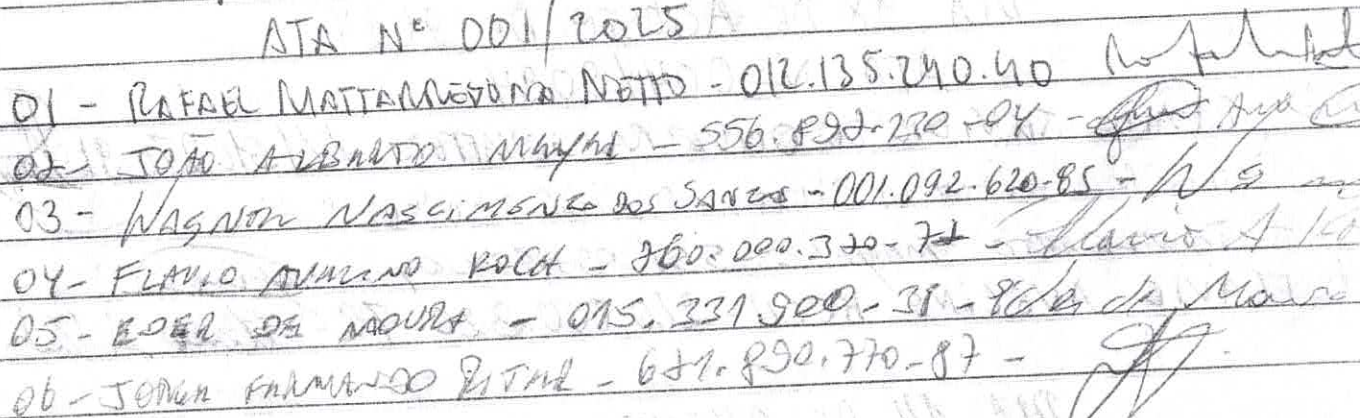 ATA Nº 001/2025
01 - RAFAEL MATTARREDONA NETTO - 012.135.240.40
02 - JOÃO ALBERTO - 556.892.230-04 -
03 - WAGNER NASCIMENTO DOS SANTOS - 001.092.620-85 -
04 - FLAVIO AVELINO KOCH - 760.000.370- - Flavio A
05 - EDER DE MOURA - 015.331.900-31 - Eder de Moura
06 - JORGE FERNANDO - 671.890.770-87 -